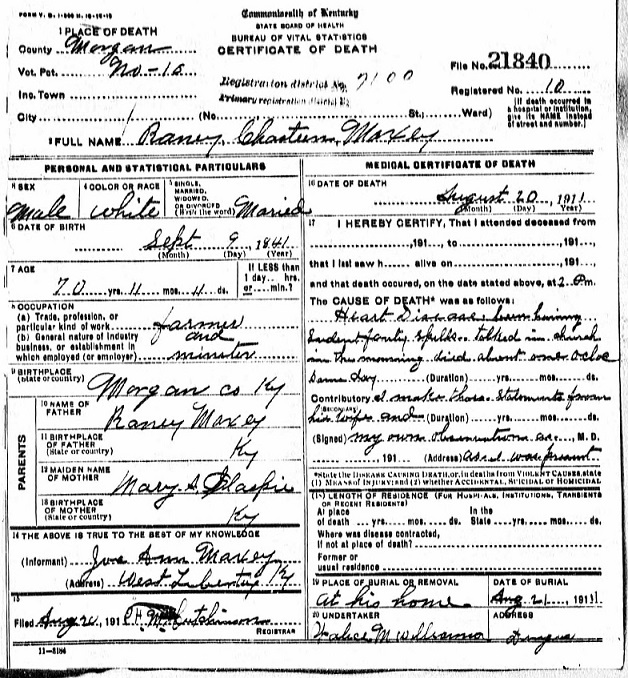 FORM V. S. 1-
Commonwealth of Kentucky
STATE BOARD OF HEALTH
BUREAU OF VITAL STATISTICS
CERTIFICATE OF DEATH
1 PLACE OF DEATH
County Morgan
Vot. Pct. No-10
Inc. Town
City (No. St.; Ward)
File No. 21840
Registration district No. 7100
Primary registration district No.
Registered No. 10
(If death occurred in a hospital or institution, give its NAME instead of street and number.)
2 FULL NAME Raney Maxey
PERSONAL AND STATISTICAL PARTICULARS
3 SEX Male
4 COLOR OR RACE White
5 SINGLE, MARRIED, WIDOWED, OR DIVORCED (Write the word) Married
6 DATE OF BIRTH
Sept 9, 1841
(Month) (Day) (Year)
7 AGE
70 yrs. 11 mos. 11 ds.
If LESS than 1 day hrs. or min.?
8 OCCUPATION
(a) Trade, profession, or particular kind of work farmer
and
(b) General nature of industry business, or establishment in which employed (or employer) minister
9 BIRTHPLACE
(State or country) Morgan co Ky
PARENTS
10 NAME OF FATHER Raney Maxey
11 BIRTHPLACE OF FATHER (State or country) Ky
12 MAIDEN NAME OF MOTHER Mary S
13 BIRTHPLACE OF MOTHER (State or country) Ky
14 THE ABOVE IS TRUE TO THE BEST OF MY KNOWLEDGE
(Informant) Ann Maxey
(Address) West Liberty Ky
15
Filed Aug 21, 191 Hutchinson
REGISTRAR
11-3184
MEDICAL CERTIFICATE OF DEATH
16 DATE OF DEATH
August 20, 1911
(Month) (Day) (Year)
17 I HEREBY CERTIFY, That I attended deceased from
, 191 , to , 191 ,
that I last saw h alive on , 191 ,
and that death occurred, on the date stated above, at 2 P m.
The CAUSE OF DEATH* was as follows:
Heart Disease been having
spells talked in church
in the morning died about one
Same day (Duration) yrs. mos. ds.
Contributory I make these Statements from
(SECONDARY) his wife and (Duration) yrs. mos. ds.
(Signed) my own observation as , M. D.
, 191 (Address) as I was present
*State the DISEASE CAUSING DEATH, or, in deaths from VIOLENT CAUSES, state (1) MEANS of INJURY; and (2) whether ACCIDENTAL, SUICIDAL or HOMICIDAL.
18 LENGTH OF RESIDENCE (FOR HOSPITALS, INSTITUTIONS, TRANSIENTS OR RECENT RESIDENTS)
At place of death yrs. mos. ds. In the State yrs. mos. ds.
Where was disease contracted, if not at place of death?
Former or usual residence
19 PLACE OF BURIAL OR REMOVAL at his home
DATE OF BURIAL Aug 21, 1911
20 UNDERTAKER M Williams
ADDRESS Dingus